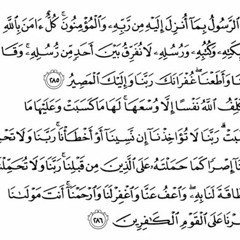 ٱلرَّسُولُ بِمَآ أُنزِلَ إِلَيْهِ مِن رَّبِّهِۦ وَٱلْمُؤْمِنُونَ ۚ كُلٌّ ءَامَنَ بِٱللَّهِ
ئِكَتِهِۦ وَكُتُبِهِۦ وَرُسُلِهِۦ لَا نُفَرِّقُ بَيْنَ أَحَدٍ مِّن رُّسُلِهِۦ ۚ وَقَا
نَا وَأَطَعْنَا ۖ غُفْرَانَكَ رَبَّنَا وَإِلَيْكَ ٱلْمَصِيرُ ٢٨٥
كَلِّفُ ٱللَّهُ نَفْسًا إِلَّا وُسْعَهَا ۚ لَهَا مَا كَسَبَتْ وَعَلَيْهَا مَا
سَبَتْ ۗ رَبَّنَا لَا تُؤَاخِذْنَآ إِن نَّسِينَآ أَوْ أَخْطَأْنَا ۚ رَبَّنَا وَلَا تَحْمِ
نَآ إِصْرًا كَمَا حَمَلْتَهُۥ عَلَى ٱلَّذِينَ مِن قَبْلِنَا ۚ رَبَّنَا وَلَا تُحَمِّلْنَا
طَاقَةَ لَنَا بِهِۦ ۖ وَٱعْفُ عَنَّا وَٱغْفِرْ لَنَا وَٱرْحَمْنَآ ۚ أَنتَ مَوْلَىٰنَا
رْنَا عَلَى ٱلْقَوْمِ ٱلْكَٰفِرِينَ ٢٨٦